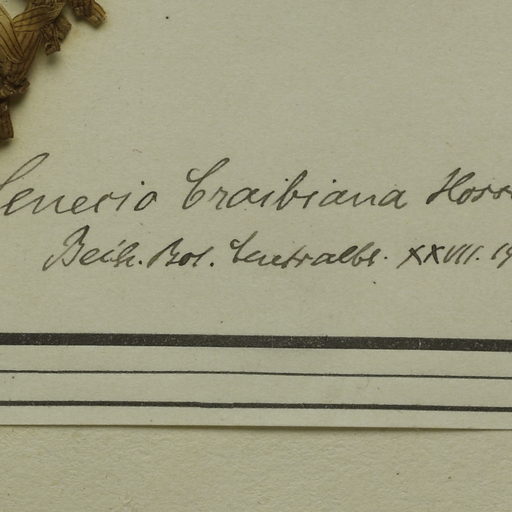 Senecio Craibiana Hoss
Beih. Bot. Centralbl. XXVIII. 19